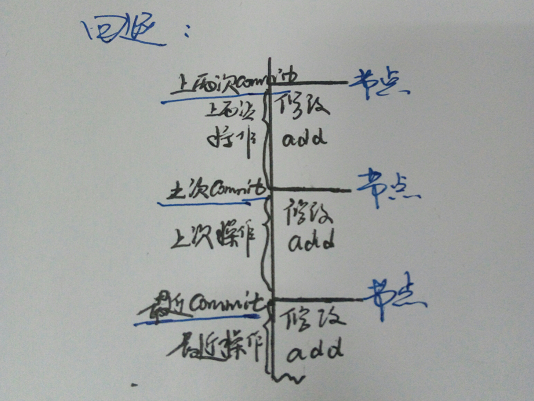 回退：
上两次Commit 节点
上两次 修改
操作 add
上次Commit 节点
修改
上次操作 add
最近Commit 节点
修改
最近操作 add